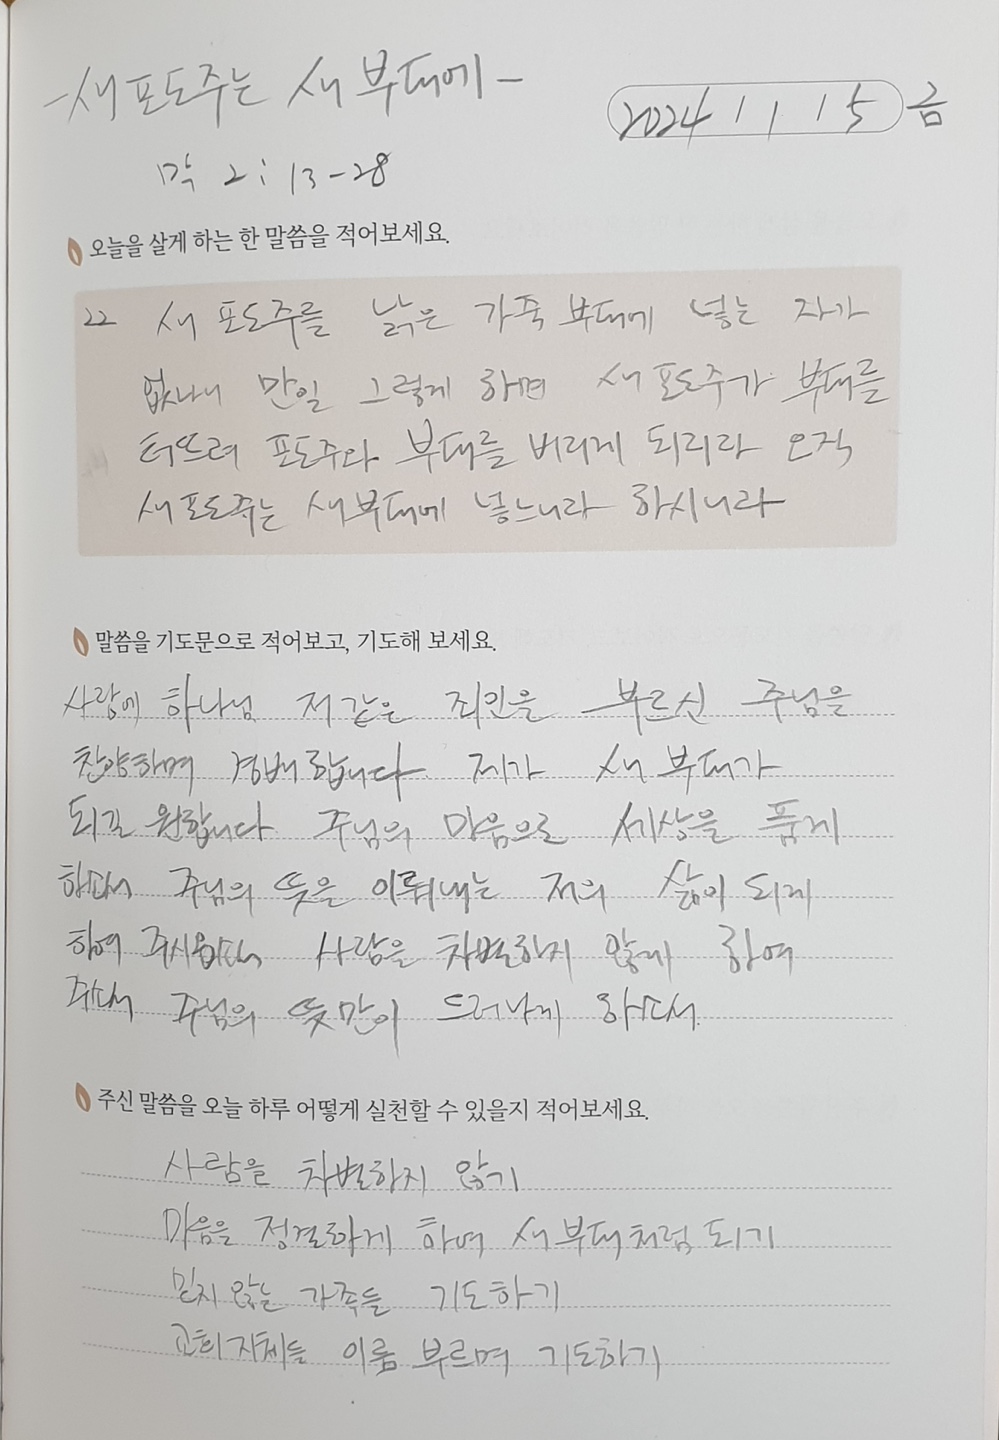 -새 포도주는 새 부대에-
2024 / 1 / 15 금
막 2: 13-28
오늘을 살게 하는 한 말씀을 적어보세요.
22 새 포도주를 낡은 가죽 부대에 넣는 자가
없나니 만일 그렇게 하면 새 포도주가 부대를
터뜨려 포도주와 부대를 버리게 되리라 오직
새 포도주는 새 부대에 넣느니라 하시니라
말씀을 기도문으로 적어보고, 기도해 보세요.
사랑에 하나님 저 같은 죄인을 부르신 주님을
찬양하며 경배합니다 제가 새 부대가
되길 원합니다 주님의 마음으로 세상을 품게
하소서 주님의 뜻을 이뤄내는 저의 삶이 되게
하여 주시옵소서 사람을 차별하지 않게 하여
주소서 주님의 뜻만이 드러나게 하소서
주신 말씀을 오늘 하루 어떻게 실천할 수 있을지 적어보세요.
사람을 차별하지 않기
마음을 정결하게 하여 새 부대처럼 되기
믿지 않는 가족들 기도하기
교회 지체들 이름 부르며 기도하기